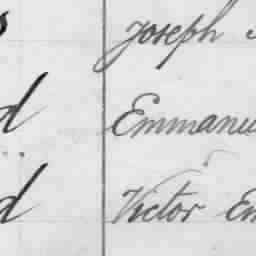 Joseph
d Emmanu
d Victor Em